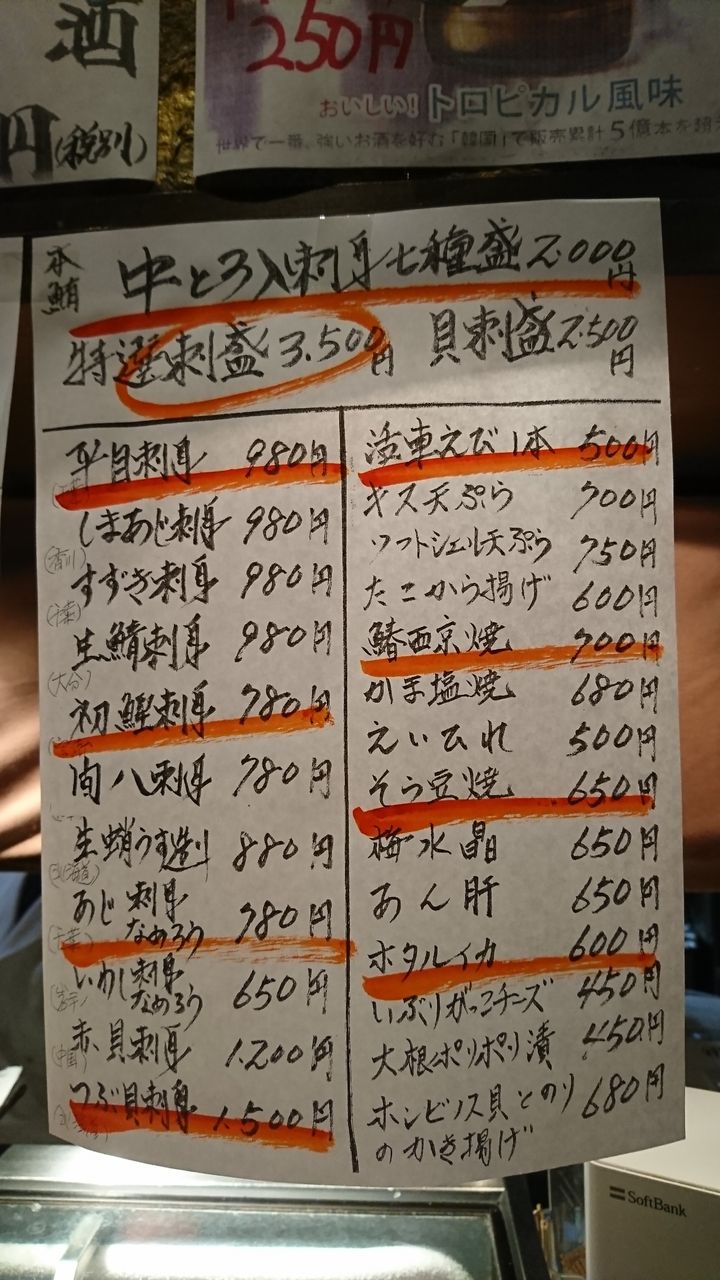 酒
円(税別)
250円
おいしい!トロピカル風味
世界で一番、強いお酒を好む「韓国」で販売累計5億本を超
本鮪 中とろ入刺身七種盛 2.000円
特選刺盛 3.500円 貝刺盛 2.500円
平目刺身 980円
しまあじ刺身 980円
(香川)
すずき刺身 980円
(千葉)
生鯖刺身 980円
(大分)
初鰹刺身 780円
間八刺身 780円
生蛸うす造り 880円
(北海道)
あじ 刺身 なめろう 780円
(千葉)
いわし 刺身 なめろう 650円
(岩手)
赤貝刺身 1.200円
(中国)
つぶ貝刺身 1.500円
活車えび 1本 500円
キス天ぷら 700円
ソフトシェル天ぷら 750円
たこから揚げ 600円
鰆西京焼 700円
かま塩焼 680円
えいひれ 500円
そら豆焼 650円
梅水晶 650円
あん肝 650円
ホタルイカ 600円
いぶりがっこチーズ 450円
大根ポリポリ漬 450円
ホンビノス貝とのり
のかき揚げ 680円
SoftBank